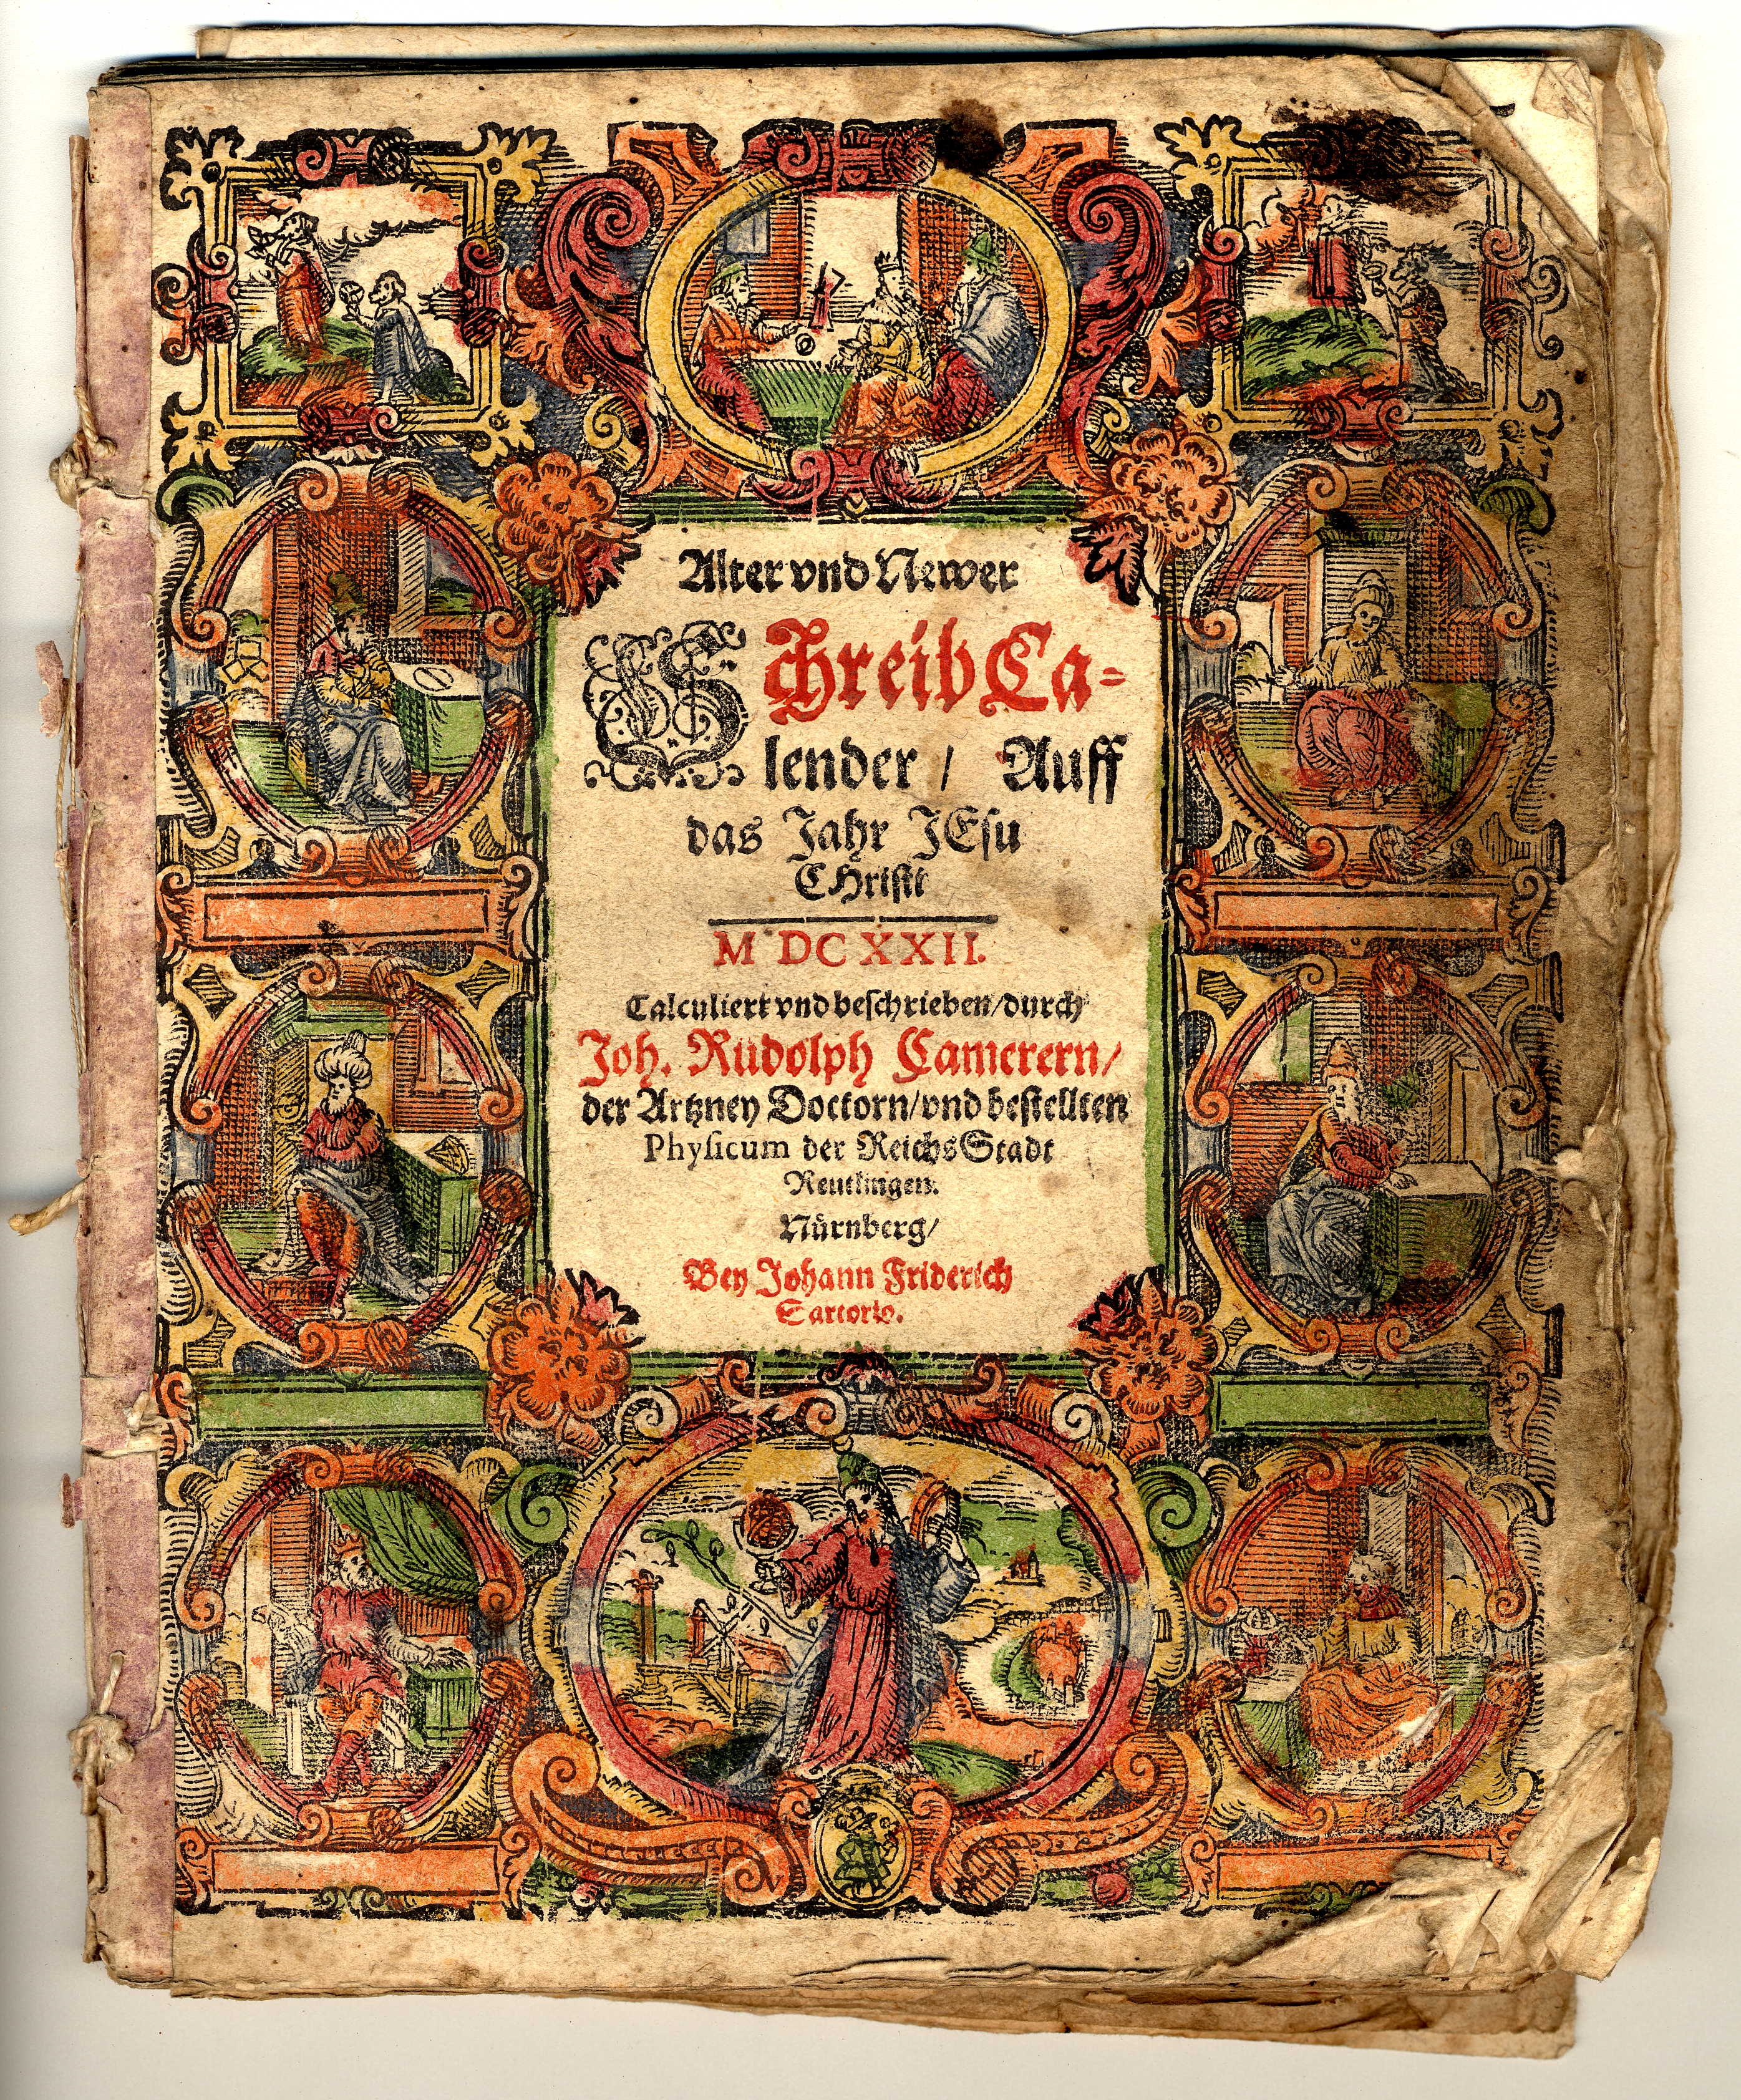 Alter vnd Newer
Schreib Ca-
lender / Auff
das Jahr JEsu
CHristi
M DC XXII.
Calculiert vnd beschrieben/durch
Joh. Rudolph Camerern/
der Artzney Doctorn/vnd bestellten
Physicum der ReichsStadt
Reutlingen.
Nürnberg/
Bey Johann Friderich
Sartorio.